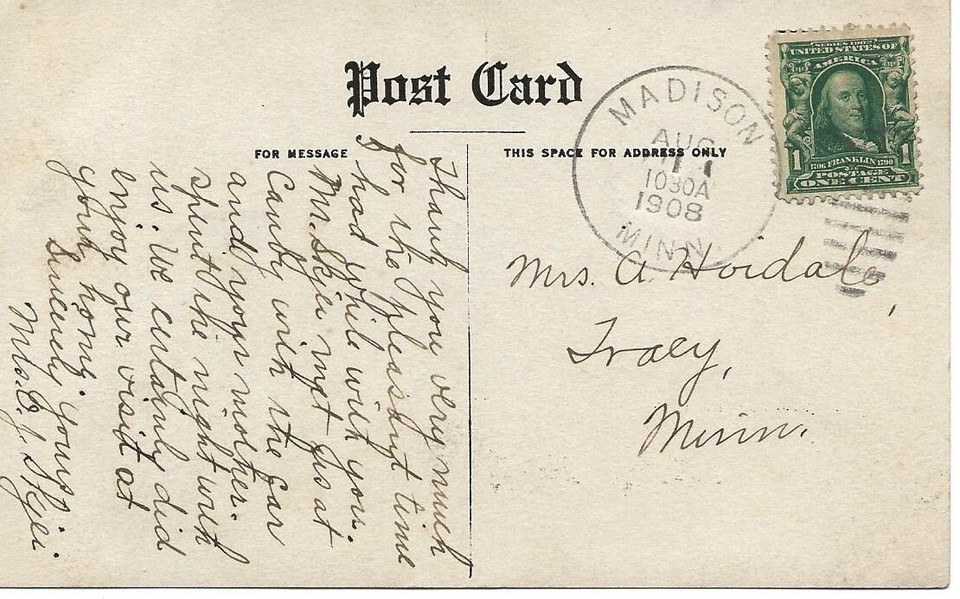 Post Card
FOR MESSAGE
THIS SPACE FOR ADDRESS ONLY
MADISON
AUG
1030A
1908
MINN.
SERIES 1902
UNITED STATES OF
AMERICA
1 1
1706 FRANKLIN 1790
POSTAGE
ONE CENT
Thank you very much
for the pleasant time
I had while with you.
Mr. Skjei met us at
Canby with the car
and your mother
spent the night with
us. We certainly did
enjoy our visit at
your home.
Sincerely yours
Mrs. O. J. Skjei.
Mrs. A. Hoidale,
Tracy,
Minn.